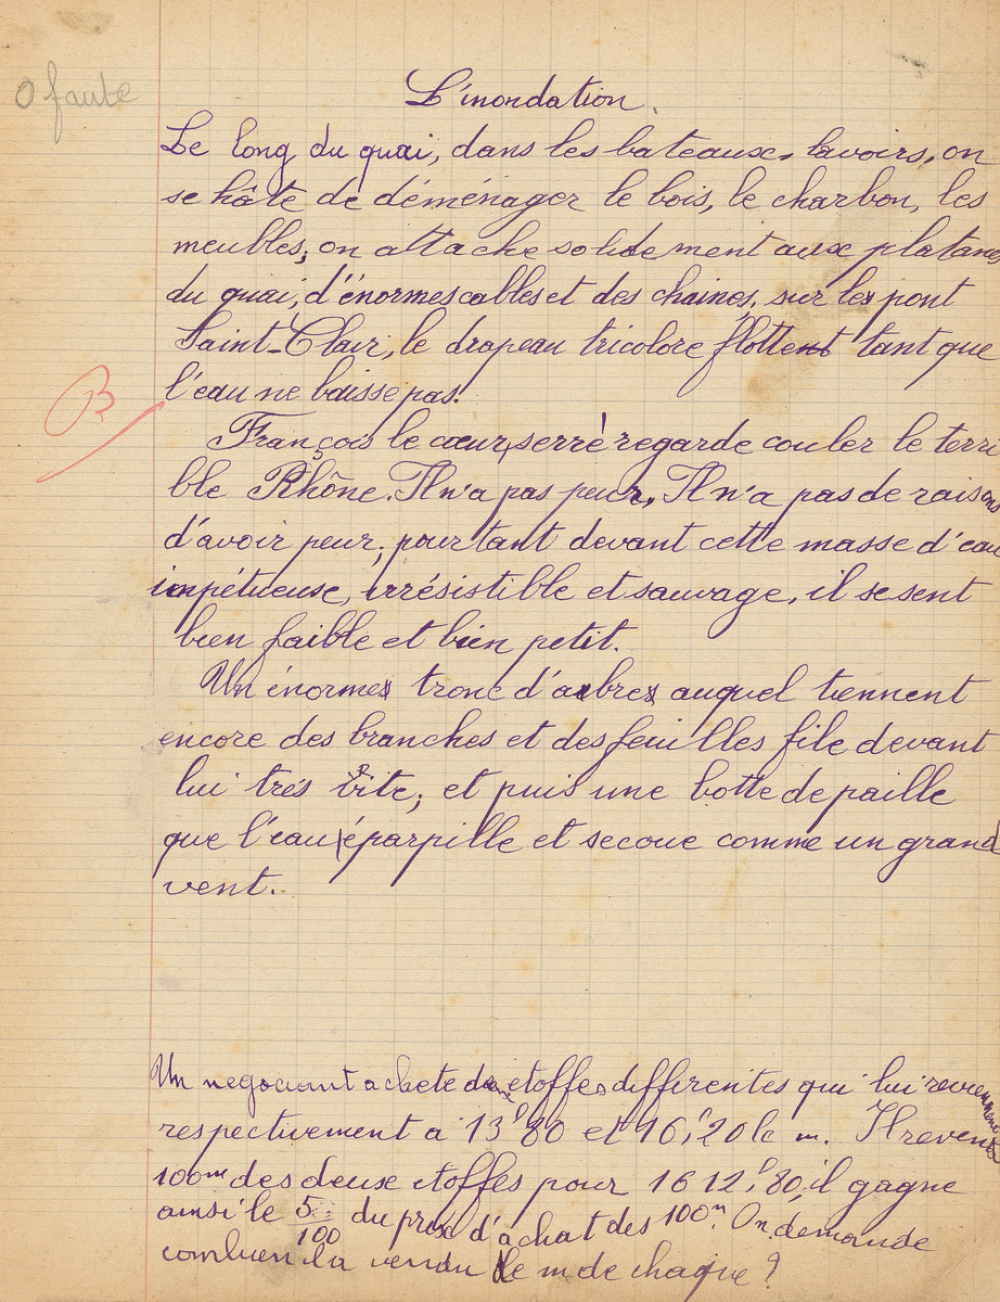 0 faute
L'inondation.
Le long du quai, dans les bateaux-lavoirs, on
se hâte de déménager le bois, le charbon, les
meubles; on attache solidement aux platanes
du quai, d'énormes cables et des chaines, sur le pont
Saint-Clair, le drapeau tricolore flotte tant que
l'eau ne baisse pas.
B
François le cœur serré regarde couler le terri
ble Rhône. Il n'a pas peur, Il n'a pas de raisons
d'avoir peur; pourtant devant cette masse d'eau
impétueuse, irrésistible et sauvage, il se sent
bien faible et bien petit.
Un énorme tronc d'arbre auquel tiennent
encore des branches et des feuilles file devant
lui très vite; et puis une botte de paille
que l'eau éparpille et secoue comme un grand
vent.
Un negociant achete deux etoffes differentes qui lui reviennent
respectivement a 13f80 et 16f,20 le m. Il revend
100m des deux etoffes pour 1612f,80, il gagne
ainsi le 5/100 du prix d'achat des 100m. On demande
combien il a vendu le m de chaque ?